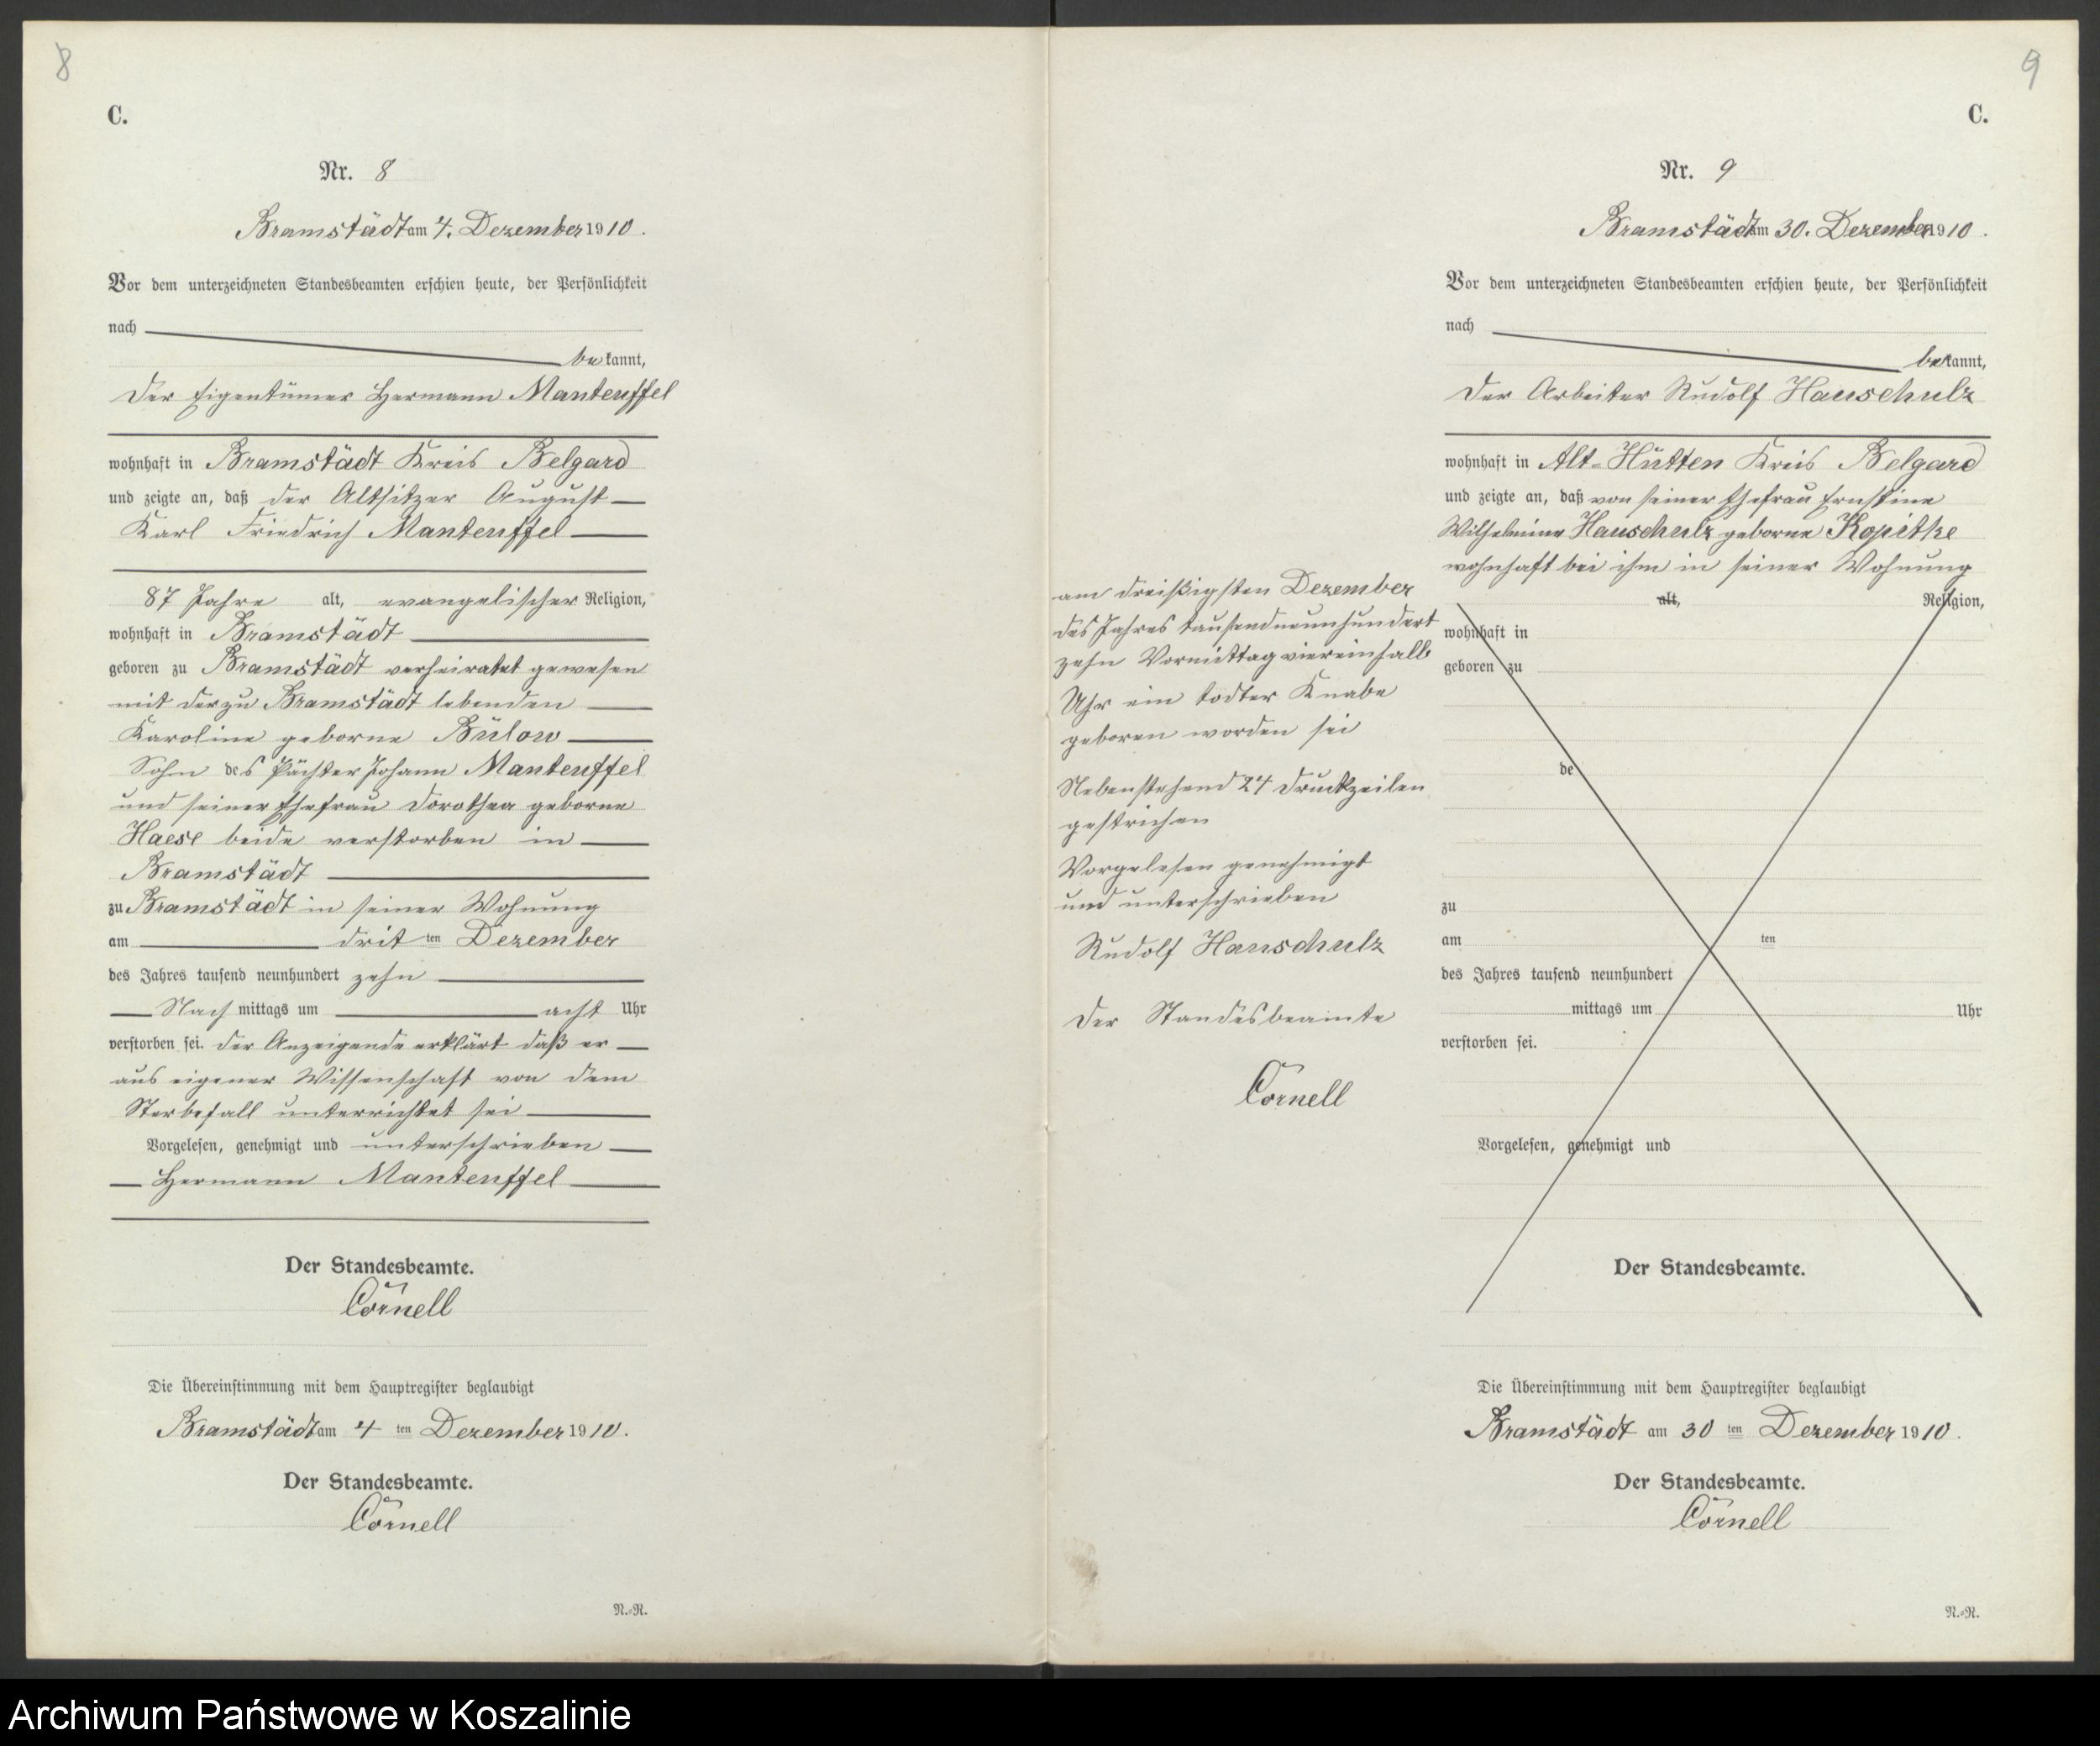 8
C.
Nr. 8
Bramstädt am 4. Dezember 1910.
Vor dem unterzeichneten Standesbeamten erschien heute, der Persönlichkeit
nach
bekannt,
der Eigentümer Hermann Manteuffel
wohnhaft in Bramstädt Kreis Belgard
und zeigte an, daß der Altsitzer August
Karl Friedrich Manteuffel
87 Jahre alt, evangelischer Religion,
wohnhaft in Bramstädt
geboren zu Bramstädt verheiratet gewesen
mit der zu Bramstädt lebenden
Karoline geborne Bülow
Sohn des Pächter Johann Manteuffel
und seiner Ehefrau Dorothea geborne
Haese beide verstorben in
Bramstädt
zu Bramstädt in seiner Wohnung
am dritten Dezember
des Jahres tausend neunhundert zehn
Nachmittags um acht Uhr
verstorben sei. Der Anzeigende erklärt daß er
aus eigener Wissenschaft von dem
Sterbefall unterrichtet sei
Vorgelesen, genehmigt und unterschrieben
Hermann Manteuffel
Der Standesbeamte.
Cörnell
Die Übereinstimmung mit dem Hauptregister beglaubigt
Bramstädt am 4 ten Dezember 1910.
Der Standesbeamte.
Cörnell
N.-R.
9
C.
Nr. 9
Bramstädt am 30. Dezember 1910.
Vor dem unterzeichneten Standesbeamten erschien heute, der Persönlichkeit
nach
bekannt,
der Arbeiter Rudolf Hauschulz
wohnhaft in Alt-Hütten Kreis Belgard
und zeigte an, daß von seiner Ehefrau Ernstine
Wilhelmine Hauschulz geborne Kopitke
wohnhaft bei ihm in seiner Wohnung
am dreißigsten Dezember
des Jahres tausendneunhundert
zehn Vormittag viereinhalb
Uhr ein todter Knabe
geboren worden sei
Nebenstehend 24 Druckzeilen
gestrichen
Vorgelesen genehmigt
und unterschrieben
Rudolf Hauschulz
Der Standesbeamte
Cörnell
alt, Religion,
wohnhaft in
geboren zu
de
zu
am ten
des Jahres tausend neunhundert
mittags um Uhr
verstorben sei.
Vorgelesen, genehmigt und
Der Standesbeamte.
Die Übereinstimmung mit dem Hauptregister beglaubigt
Bramstädt am 30 ten Dezember 1910.
Der Standesbeamte.
Cörnell
N.-R.
Archiwum Państwowe w Koszalinie